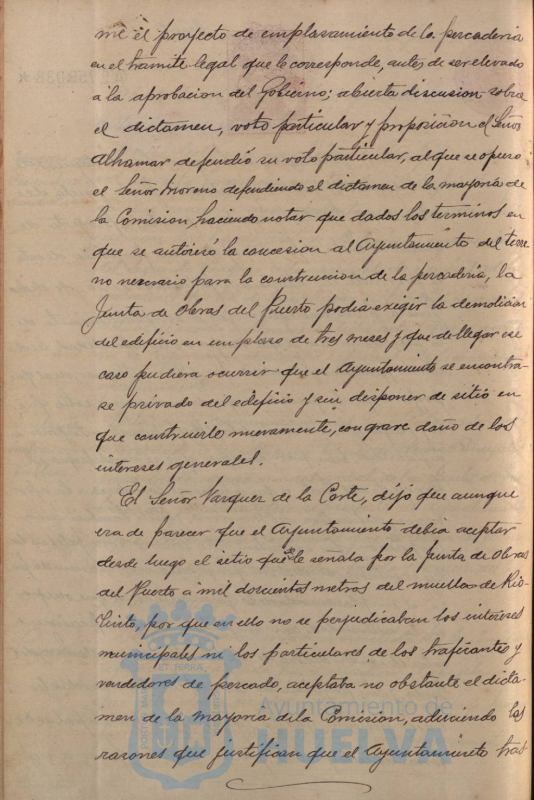 me el proyecto de emplazamiento de la pescaderia
en el trámite legal que le corresponde, antes de ser elevado
á la aprobacion del Gobierno; abierta discusion sobre
el dictamen, voto particular y proposicion el Señor
Alhamar defendió su voto particular, al que se opuso
el Señor Moreno defendiendo el dictamen de la mayoria de
la Comision, haciendo notar que dados los terminos en
que se autorizó la concesion al Ayuntamiento del terre
no necesario para la construccion de la pescaderia, la
Junta de Obras del Puerto podia exigir la demolicion
del edificio en un plazo de tres meses y que de llegar ese
caso pudiera ocurrir que el Ayuntamiento se encontra-
se privado del edificio y sin disponer de sitio en
que construirlo nuevamente, con grave daño de los
intereses generales.
El Señor Vazquez de la Corte, dijo que aunque
era de parecer que el Ayuntamiento debia aceptar
desde luego el sitio que se le señala por la Junta de Obras
del Puerto á mil doscientos metros del muelle de Rio-
Tinto, por que en ello no se perjudicaban los intereses
municipales ni los particulares de los traficantes y
vendedores de pescado, aceptaba no obstante el dicta-
men de la mayoria de la Comision, aduciendo las
razones que justifican que el Ayuntamiento trás
Ayuntamiento de
HUELVA